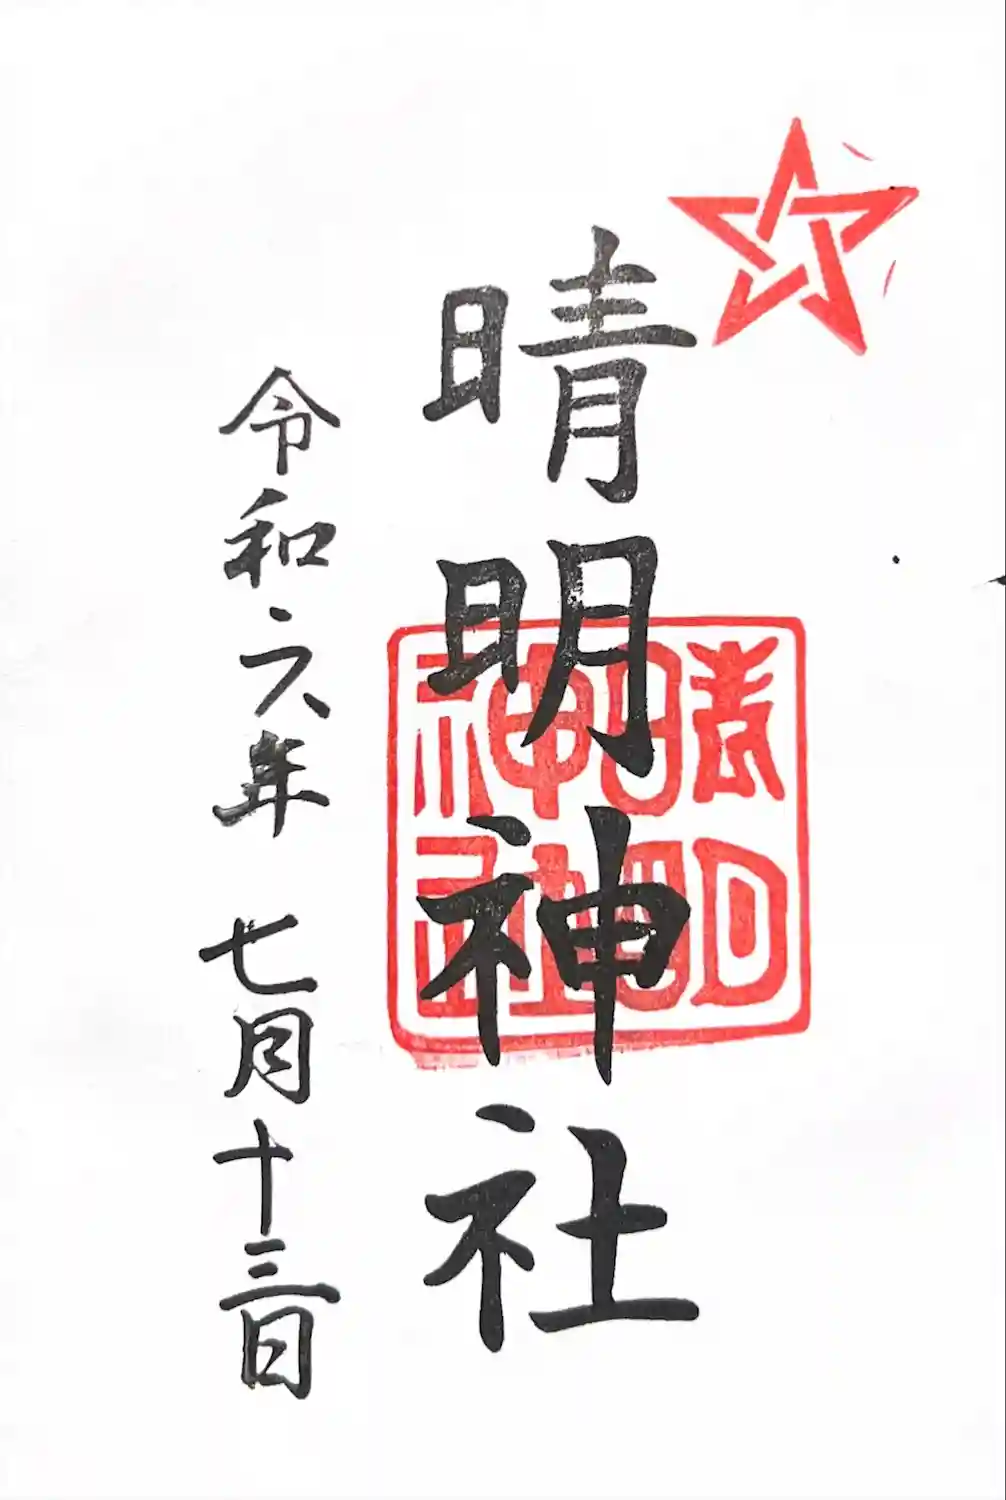 晴明神社
晴明
神社
令和六年 七月十三日